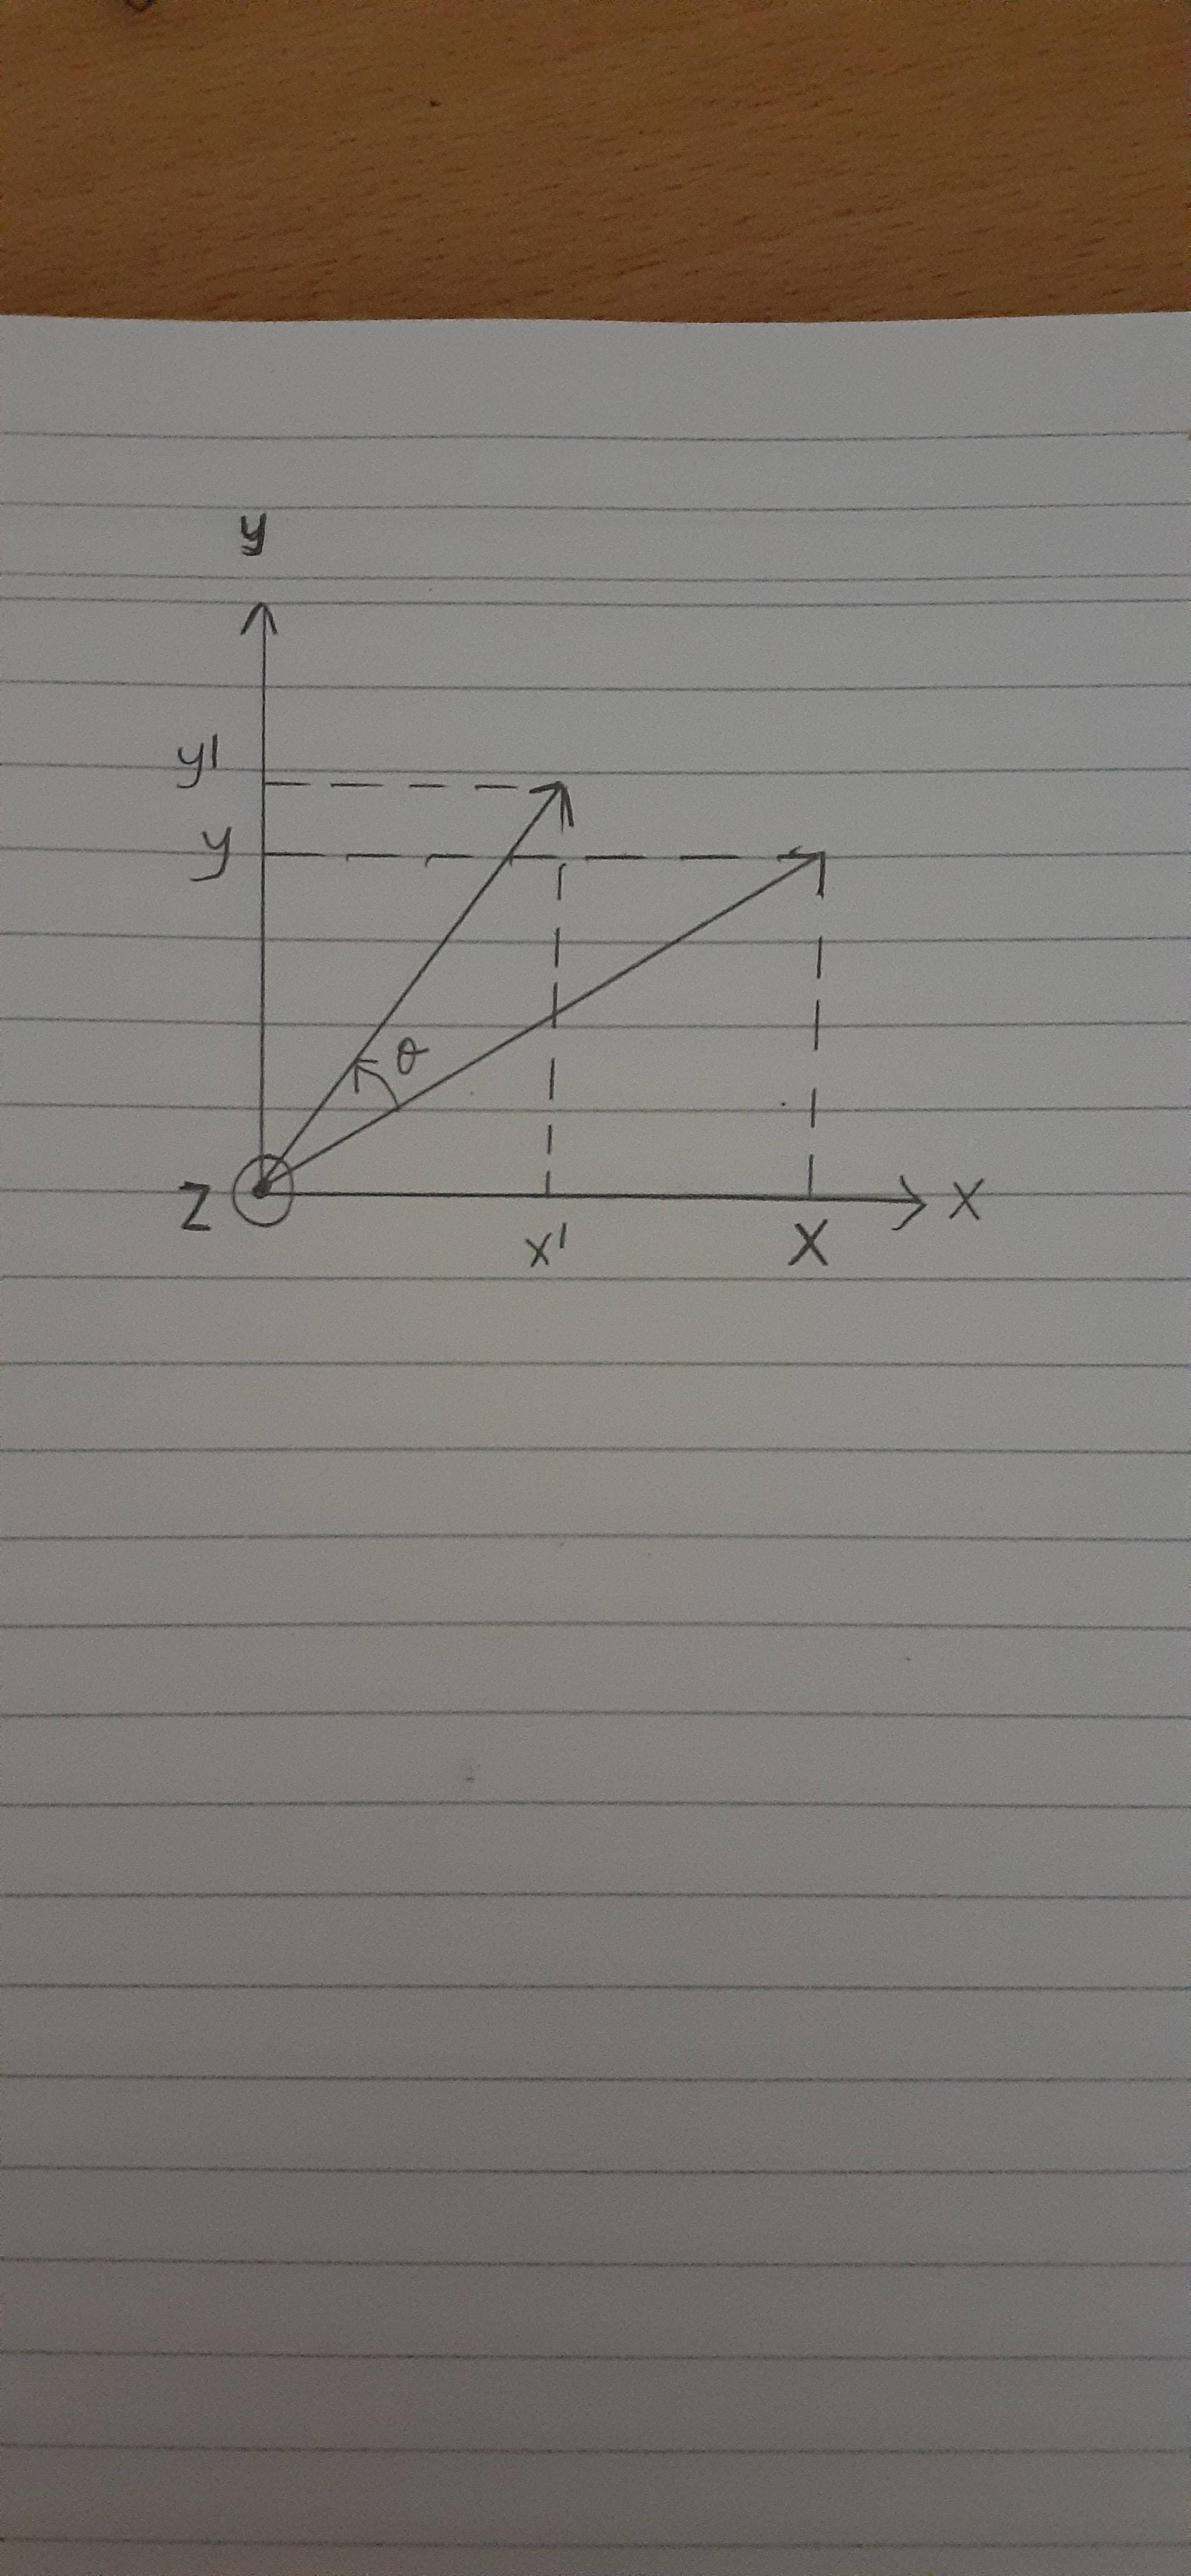 y
y'
y
θ
Z
X
x'
X